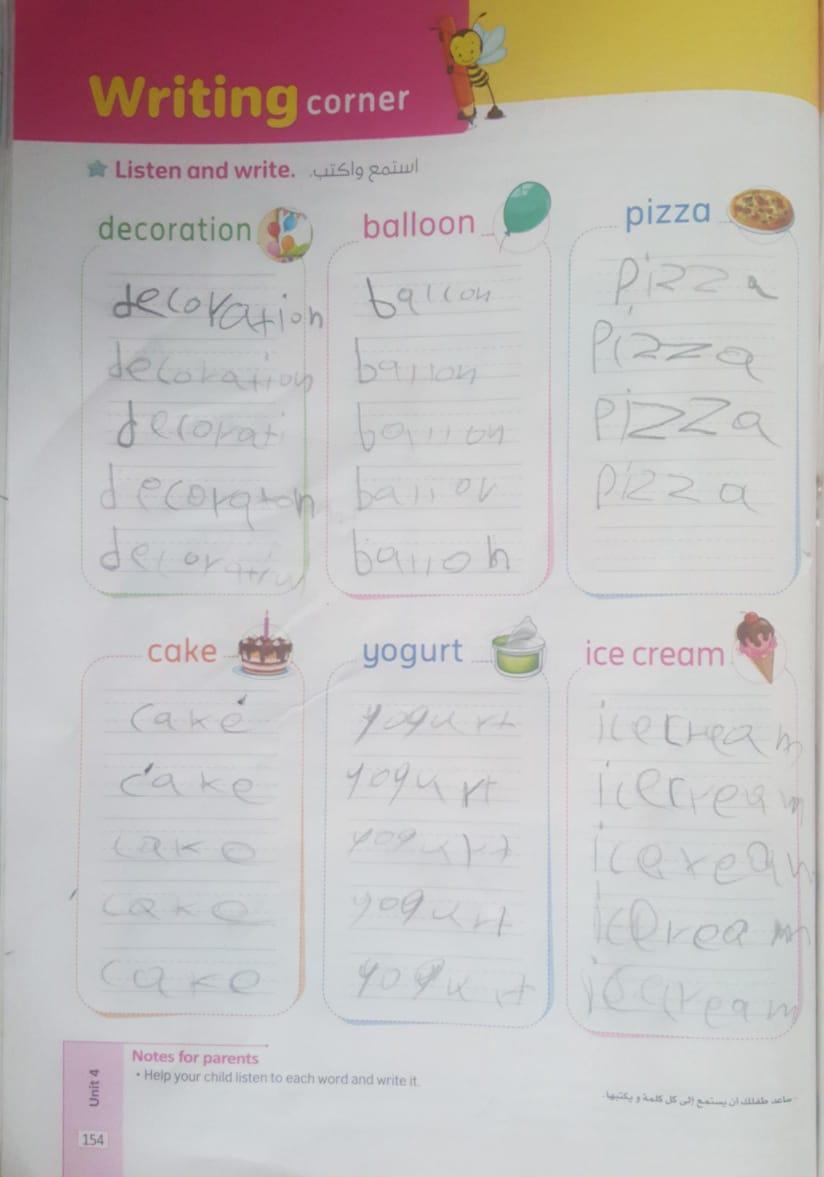 Writing corner
Listen and write. استمع واكتب.
decoration
balloon
pizza
decoration
decoration
decorati
decoraton
ballon
ballon
ballon
pizza
pizza
pizza
pizza
cake
yogurt
ice cream
cake
cake
cake
cake
cake
yogurt
yogurt
yogurt
yogurt
yogurt
icecream
icecream
icerream
Notes for parents
• Help your child listen to each word and write it.
ساعد طفلك أن يستمع إلى كل كلمة و يكتبها.
Unit 4
154